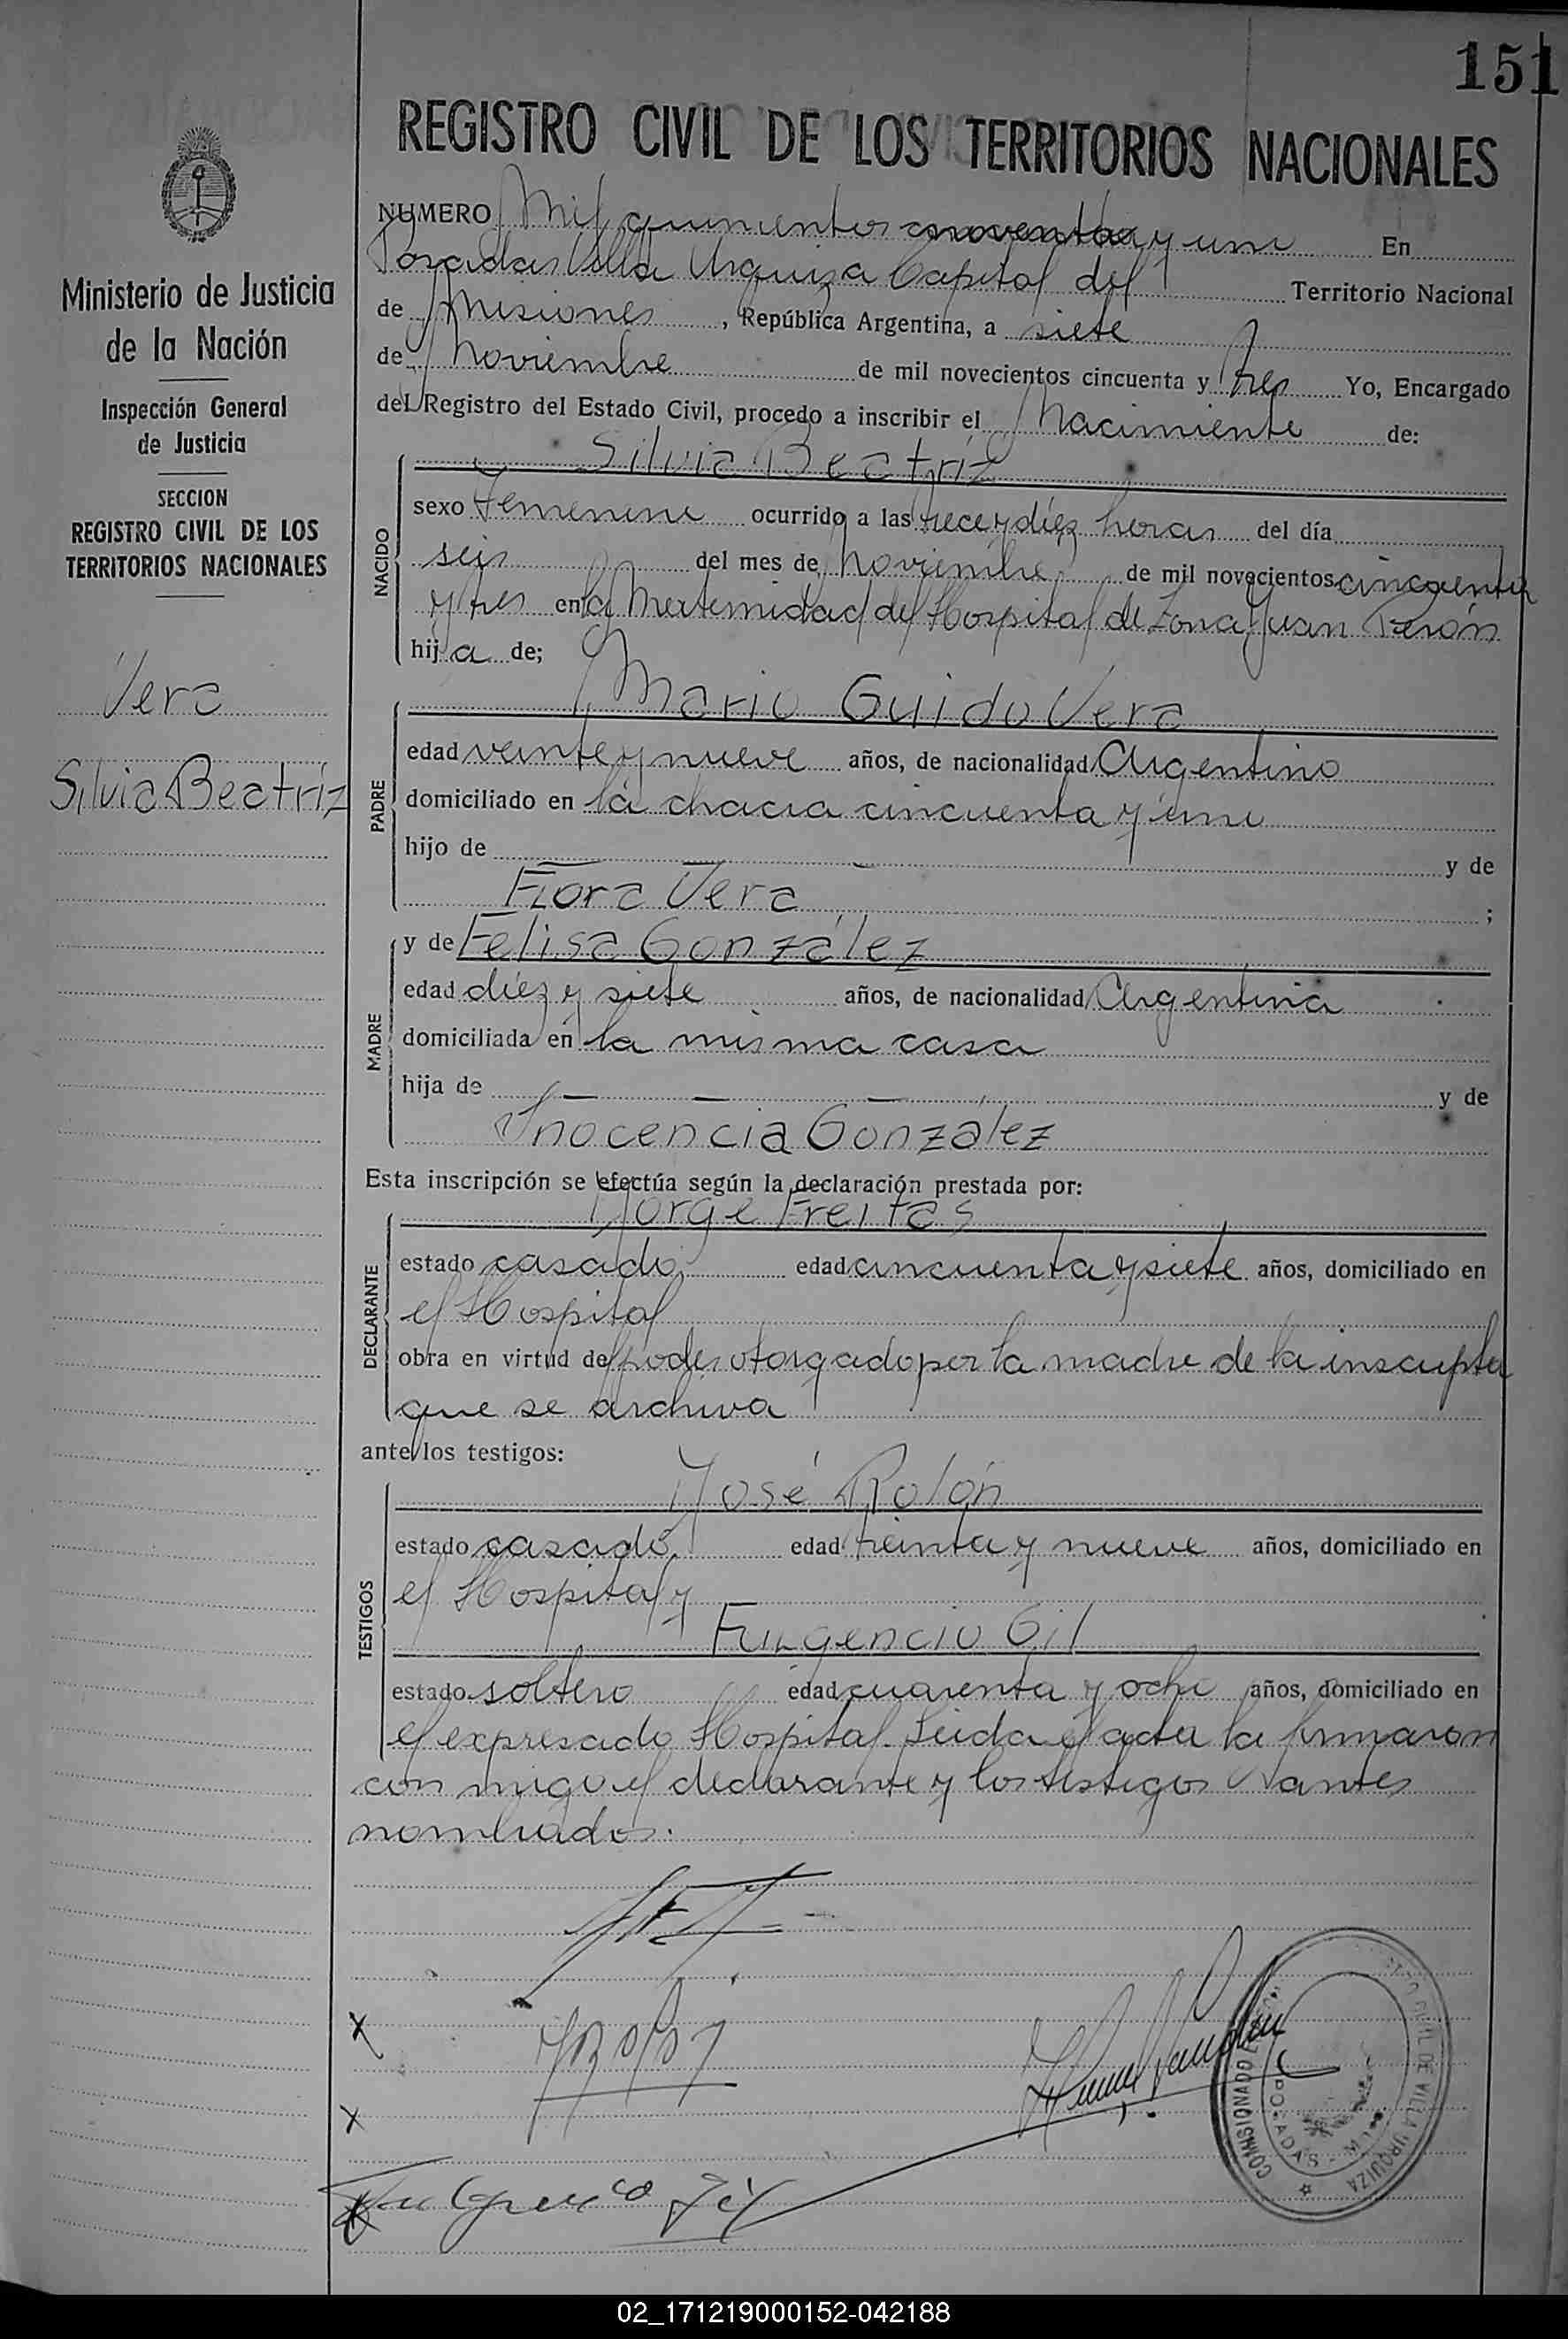 151
REGISTRO CIVIL DE LOS TERRITORIOS NACIONALES
Ministerio de Justicia
de la Nación
Inspección General
de Justicia
SECCION
REGISTRO CIVIL DE LOS
TERRITORIOS NACIONALES
Vera
Silvia Beatríz
NUMERO Mil quinientos noventa y uno En
Posadas Villa Urquiza Capital del Territorio Nacional
de Misiones, República Argentina, a siete
de Noviembre de mil novecientos cincuenta y tres Yo, Encargado
del Registro del Estado Civil, procedo a inscribir el Nacimiento de:
Silvia Beatríz
NACIDO
sexo Femenino ocurrido a las trece y diez horas del día
seis del mes de Noviembre de mil novecientos cincuenta
y tres en la Maternidad del Hospital de Zona Juan Perón
hija de;
Mario Guido Vera
PADRE
edad veinte y nueve años, de nacionalidad Argentino
domiciliado en la chacra cincuenta y uno
hijo de y de
Flora Vera ;
MADRE
y de Felisa González
edad diez y siete años, de nacionalidad Argentina
domiciliada en la misma casa
hija de y de
Inocencia González
Esta inscripción se efectúa según la declaración prestada por:
Jorge Freitas
DECLARANTE
estado casado edad cincuenta y siete años, domiciliado en
el Hospital
obra en virtud del poder otorgado por la madre de la inscripta
que se archiva
ante los testigos:
José Rolón
TESTIGOS
estado casado edad treinta y nueve años, domiciliado en
el Hospital y
Fulgencio Gil
estado soltero edad cuarenta y ocho años, domiciliado en
el expresado Hospital. Leida el acta la firmaron
con migo el declarante y los testigos antes
nombrados.
Fulgencio Gil
COMISIONADO
CIVIL DE VILLA URQUIZA
POSADAS - M
02_171219000152-042188